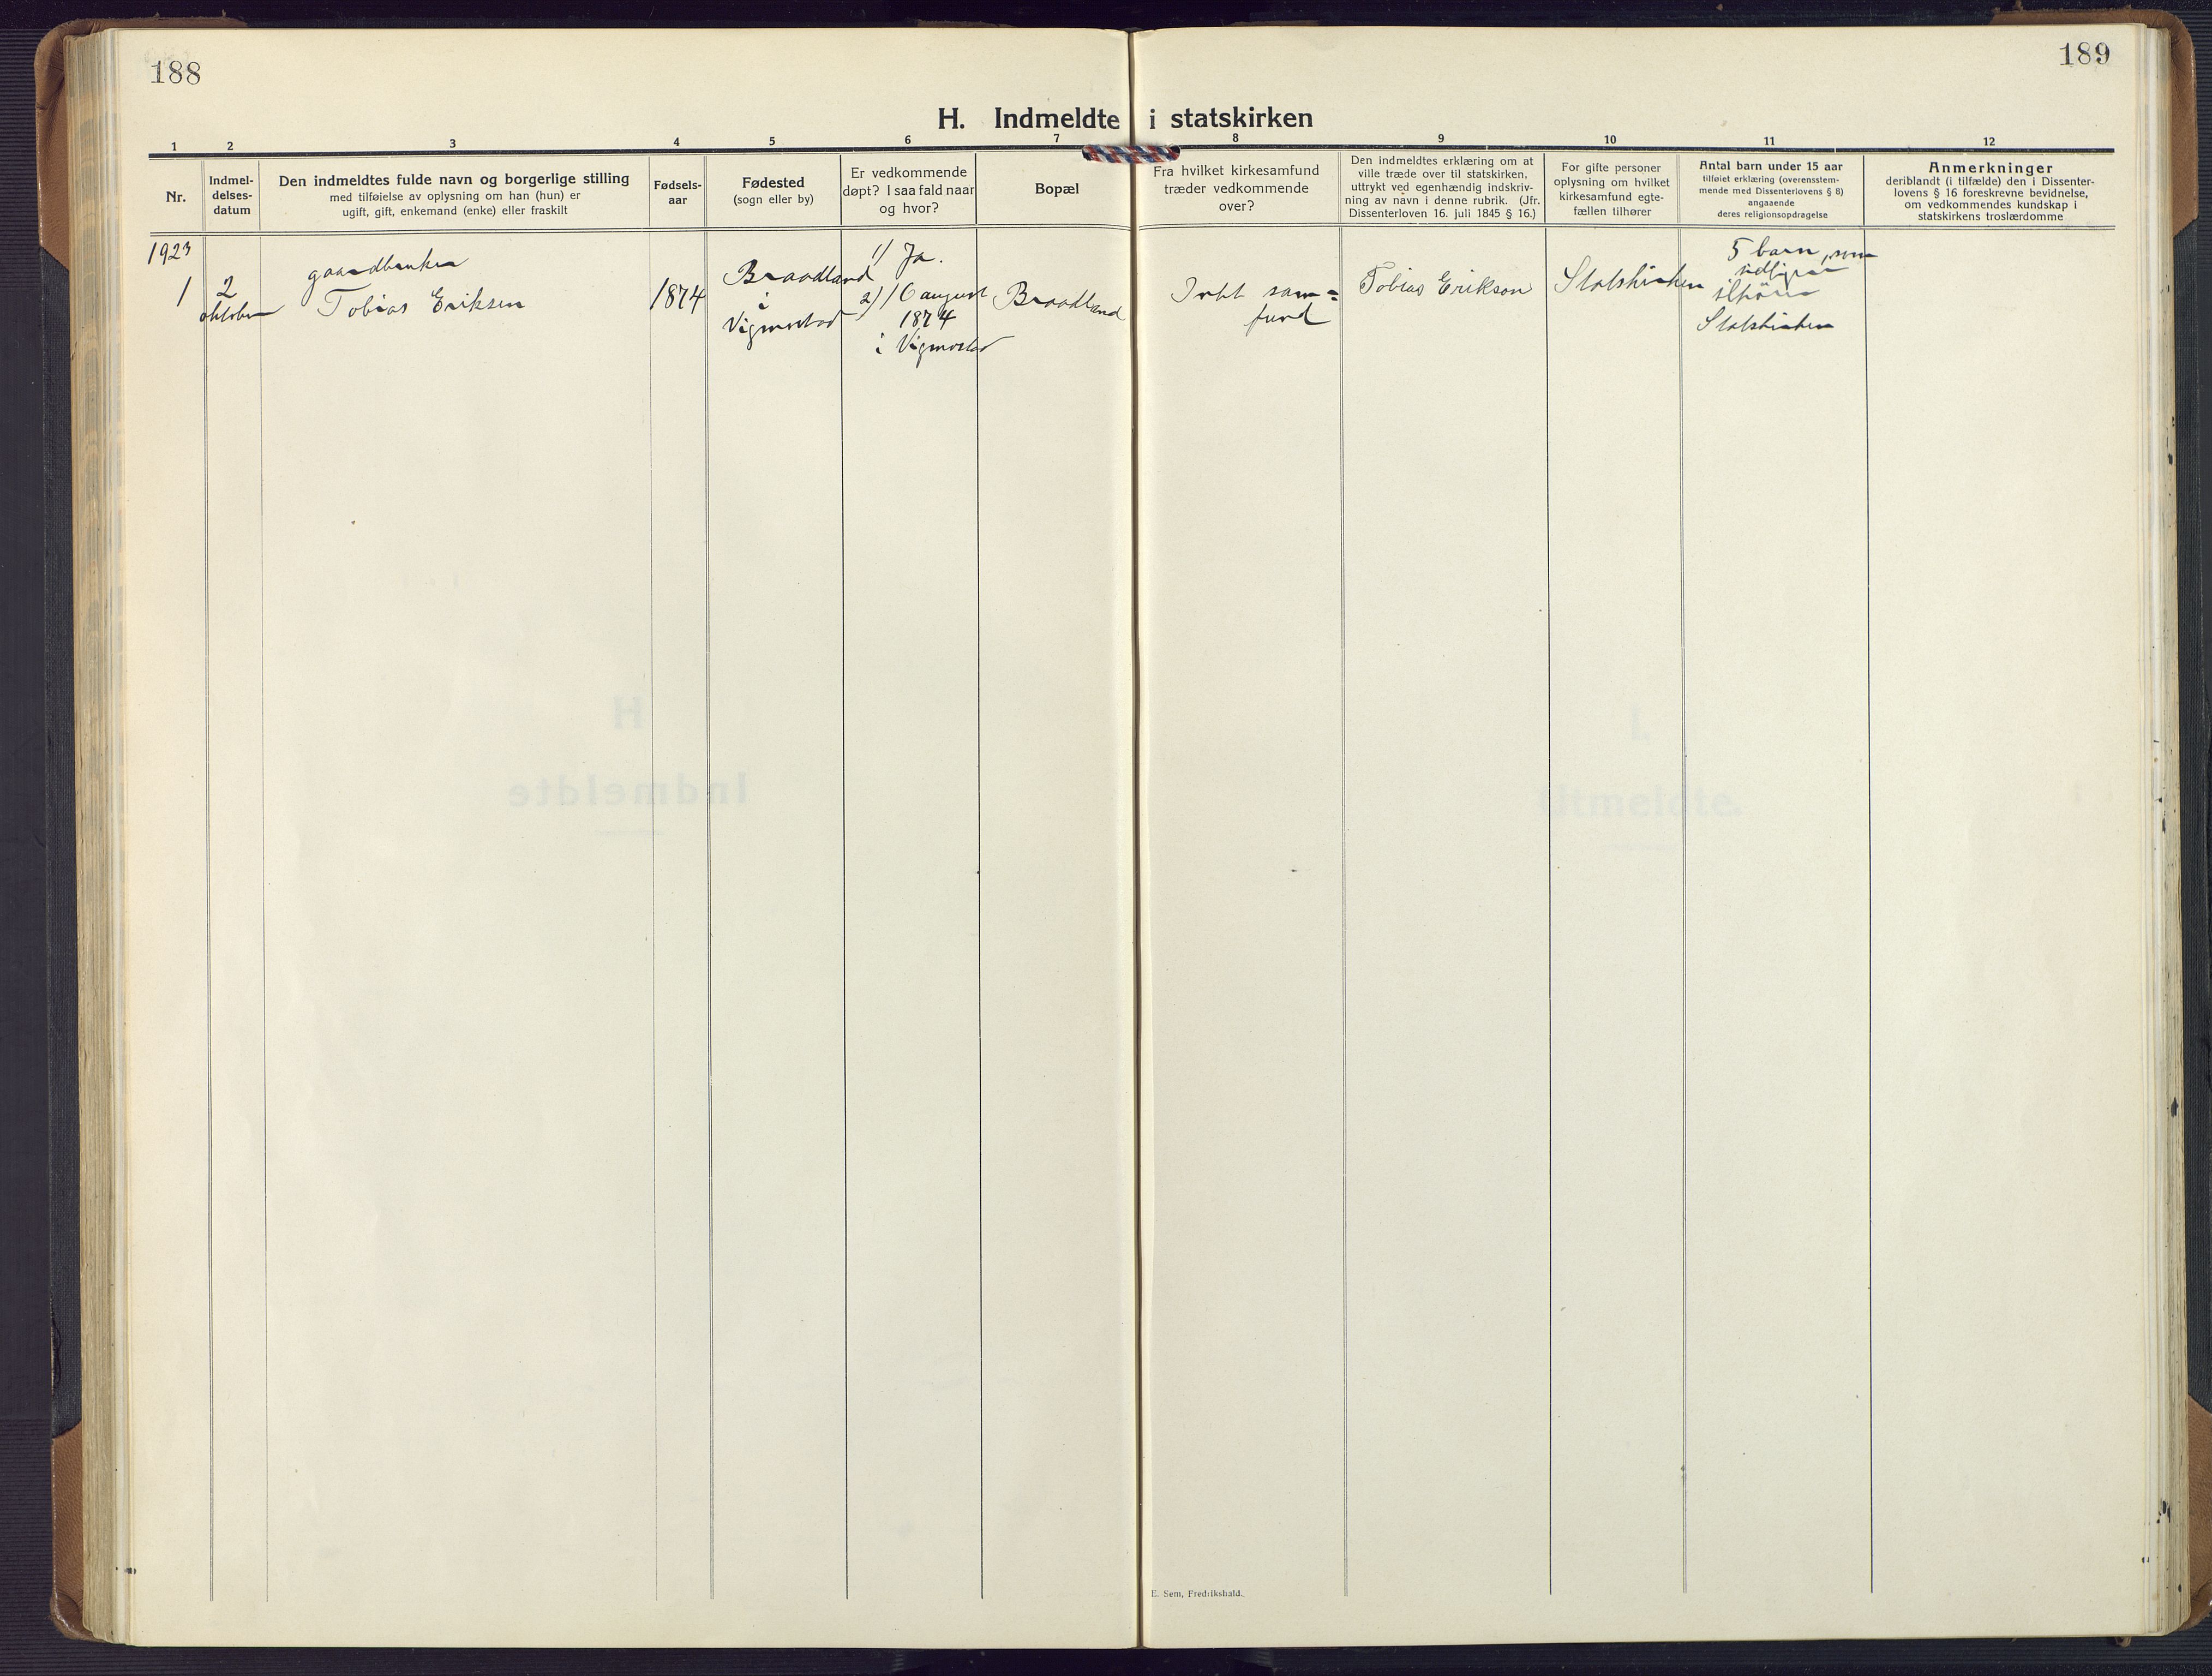 188
189
H. Indmeldte i statskirken
1 2 3 4 5 6 7 8 9 10 11 12
Nr.
Indmel-
delses-
datum
Den indmeldtes fulde navn og borgerlige stilling
med tilføielse av oplysning om han (hun) er
ugift, gift, enkemand (enke) eller fraskilt
Fødsels-
aar
Fødested
(sogn eller by)
Er vedkommende
døpt? I saa fald naar
og hvor?
Bopæl
Fra hvilket kirkesamfund
træder vedkommende
over?
Den indmeldtes erklæring om at
ville træde over til statskirken,
uttrykt ved egenhændig indskriv-
ning av navn i denne rubrik. (Jfr.
Dissenterloven 16. juli 1845 § 16.)
For gifte personer
oplysning om hvilket
kirkesamfund egte-
fællen tilhører
Antal barn under 15 aar
tilføiet erklæring (overensstem-
mende med Dissenterlovens § 8)
angaaende
deres religionsopdragelse
Anmerkninger
deriblandt (i tilfælde) den i Dissenter-
lovens § 16 foreskrevne bevidnelse,
om vedkommendes kundskap i
statskirkens troslærdomme
1923
1
2
oktober
gaardbruker
Tobias Eriksen
1874
Braadland
i
Vigmostad
1/ Ja.
2)
august
1874
i Vigmostad
Braadland
Intet sam=
fund
Tobias Erikson
Statskirken
5 barn, som
tilhører
Statskirken
E. Sem, Fredrikshald.